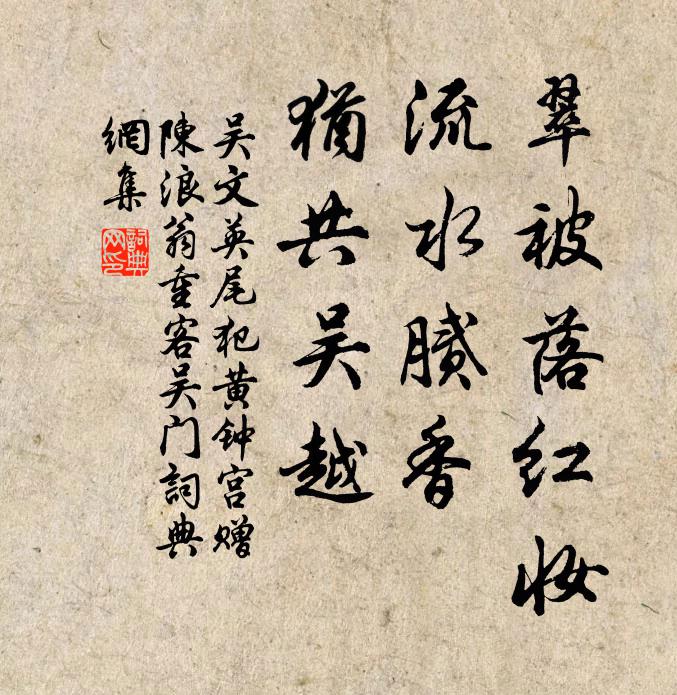 翠被落红妆
流水腻香
犹共吴越
吴文英尾犯黄钟宫赠
陳浪翁重客吴门詞典
網集
詞典
网印